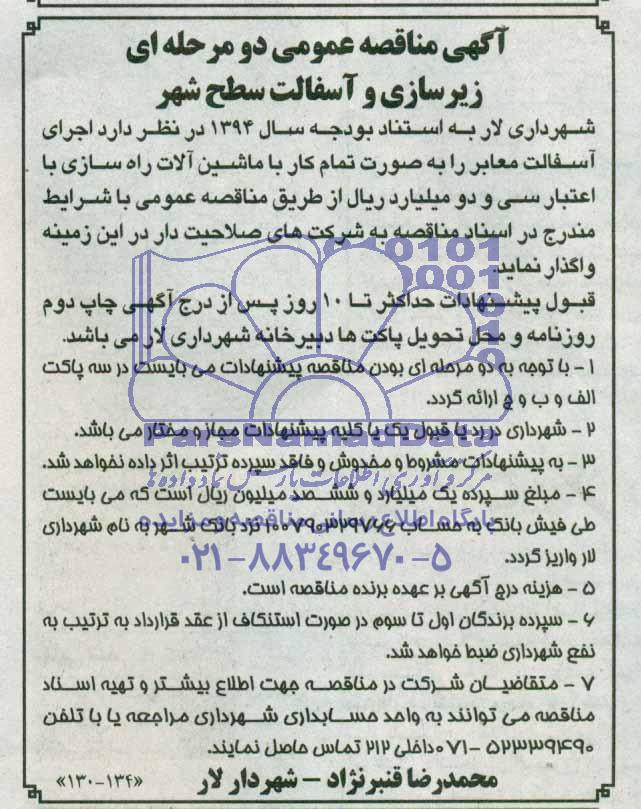 آگهی مناقصه عمومی دو مرحله ای
زیرسازی و آسفالت سطح شهر
شهرداری لار به استناد بودجه سال ۱۳۹۴ در نظر دارد اجرای
آسفالت معابر را به صورت تمام کار با ماشین آلات راه سازی با
اعتبار سی و دو میلیارد ریال از طریق مناقصه عمومی با شرایط
مندرج در اسناد مناقصه به شرکت های صلاحیت دار در این زمینه
واگذار نماید.
قبول پیشنهادات حداکثر تا ۱۰ روز پس از درج آگهی چاپ دوم
روزنامه و محل تحویل پاکت ها دبیرخانه شهرداری لار می باشد.
۱- با توجه به دو مرحله ای بودن مناقصه پیشنهادات می بایست در سه پاکت
الف و ب و ج ارائه گردد.
۲- شهرداری در رد یا قبول یک یا کلیه پیشنهادات مجاز و مختار می باشد.
۳- به پیشنهادات مشروط و مخدوش و فاقد سپرده ترتیب اثر داده نخواهد شد.
۴- مبلغ سپرده یک میلیارد و ششصد میلیون ریال است که می بایست
طی فیش بانک به حساب نزد بانک شهر به نام شهرداری
لار واریز گردد.
۵- هزینه درج آگهی بر عهده برنده مناقصه است.
۶- سپرده برندگان اول تا سوم در صورت استنکاف از عقد قرارداد به ترتیب به
نفع شهرداری ضبط خواهد شد.
۷- متقاضیان شرکت در مناقصه جهت اطلاع بیشتر و تهیه اسناد
مناقصه می توانند به واحد حسابداری شهرداری مراجعه یا با تلفن
۵۲۳۳۹۴۹۰-۰۷۱ داخلی ۲۱۲ تماس حاصل نمایند.
محمدرضا قنبرنژاد – شهردار لار
«۱۳۰-۱۳۴»
ParsNamadData
مرکز فرآوری اطلاعات پارس نماد داده ها
پایگاه اطلاع رسانی مناقصه و مزایده
۰۲۱-۸۸۳۴۹۶۷۰-۵